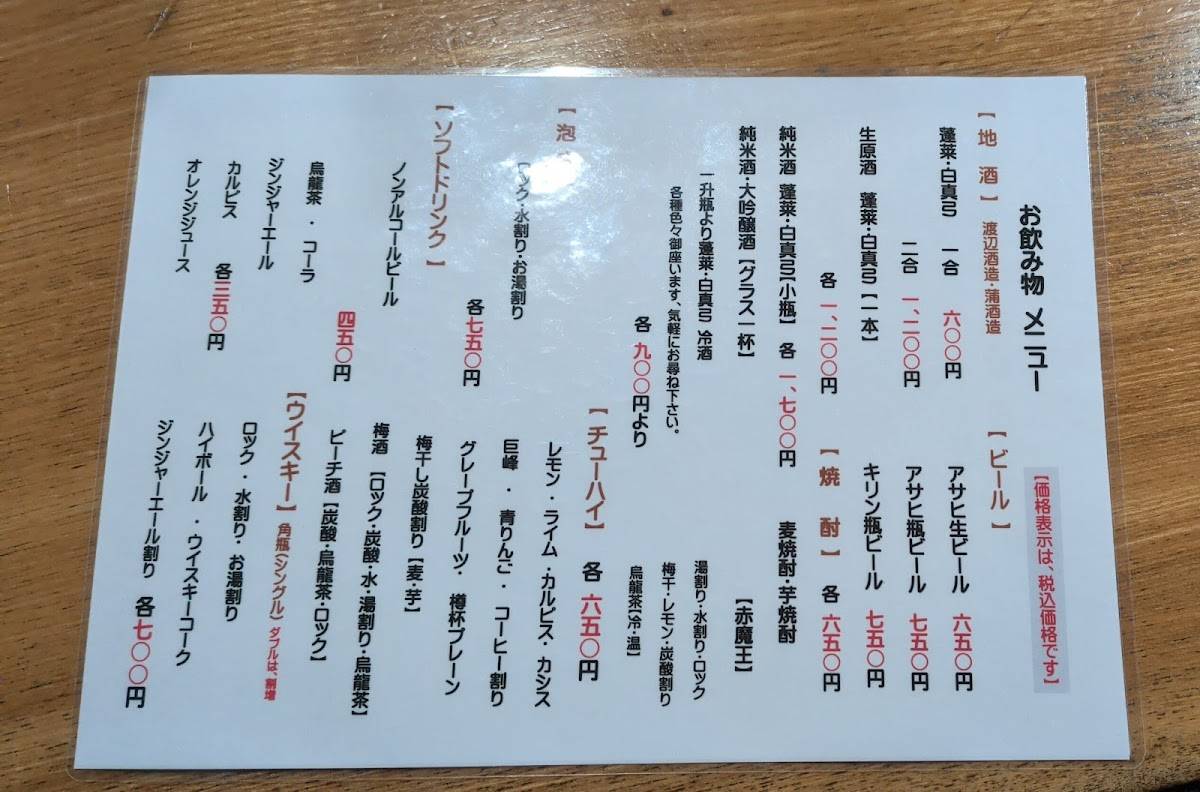 お飲み物 メニュー
【価格表示は、税込価格です】
【 地 酒 】 渡辺酒造・蒲酒造
蓬莱・白真弓 一合 六〇〇円
二合 一、二〇〇円
生原酒 蓬莱・白真弓【一本】
各 一、二〇〇円
純米酒 蓬莱・白真弓【小瓶】 各 一、七〇〇円
純米酒・大吟醸酒【グラス一杯】
一升瓶より蓬莱・白真弓 冷酒
各種色々御座います、気軽にお尋ね下さい。
各 九〇〇円より
【 泡
【ロック・水割り・お湯割り
各 七五〇円
【 ソフトドリンク 】
ノンアルコールビール
四五〇円
烏龍茶 ・ コーラ
ジンジャーエール
カルピス 各三五〇円
オレンジジュース
【 ビール 】
アサヒ生ビール 六五〇円
アサヒ瓶ビール 七五〇円
キリン瓶ビール 七五〇円
【 焼 酎 】 各 六五〇円
麦焼酎・芋焼酎
【赤魔王】
湯割り・水割り・ロック
梅干・レモン・炭酸割り
烏龍茶【冷・温】
【 チューハイ 】 各 六五〇円
レモン・ライム・カルピス・カシス
巨峰 ・ 青りんご ・ コーヒー割り
グレープフルーツ・ 樽杯プレーン
梅干し炭酸割り【麦・芋】
梅酒 【ロック・炭酸・水・湯割り・烏龍茶】
ピーチ酒【炭酸・烏龍茶・ロック】
【ウイスキー】 角瓶(シングル) ダブルは、割増
ロック ・ 水割り・ お湯割り
ハイボール ・ウイスキーコーク
ジンジャーエール割り 各七〇〇円